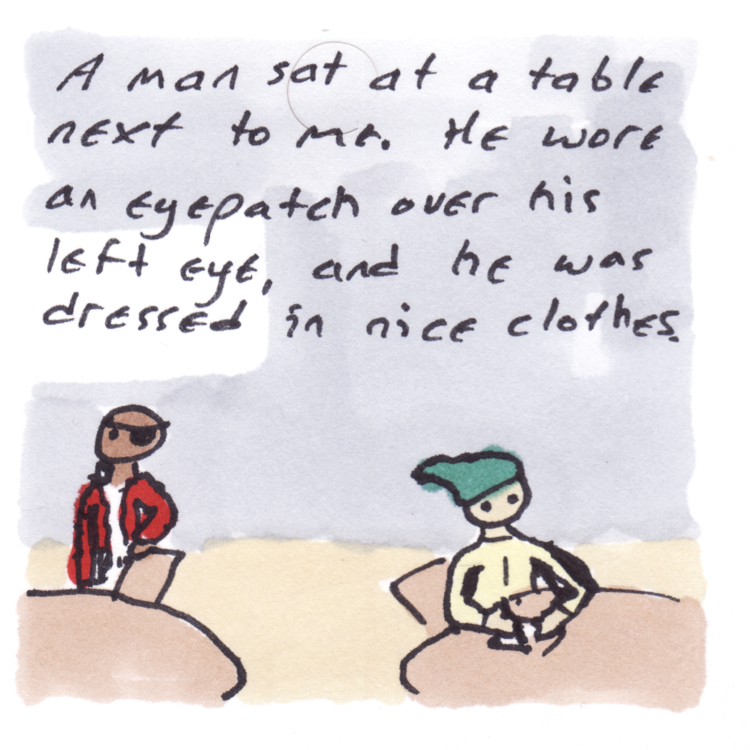 A man sat at a table
next to me. He wore
an eyepatch over his
left eye, and he was
dressed in nice clothes.